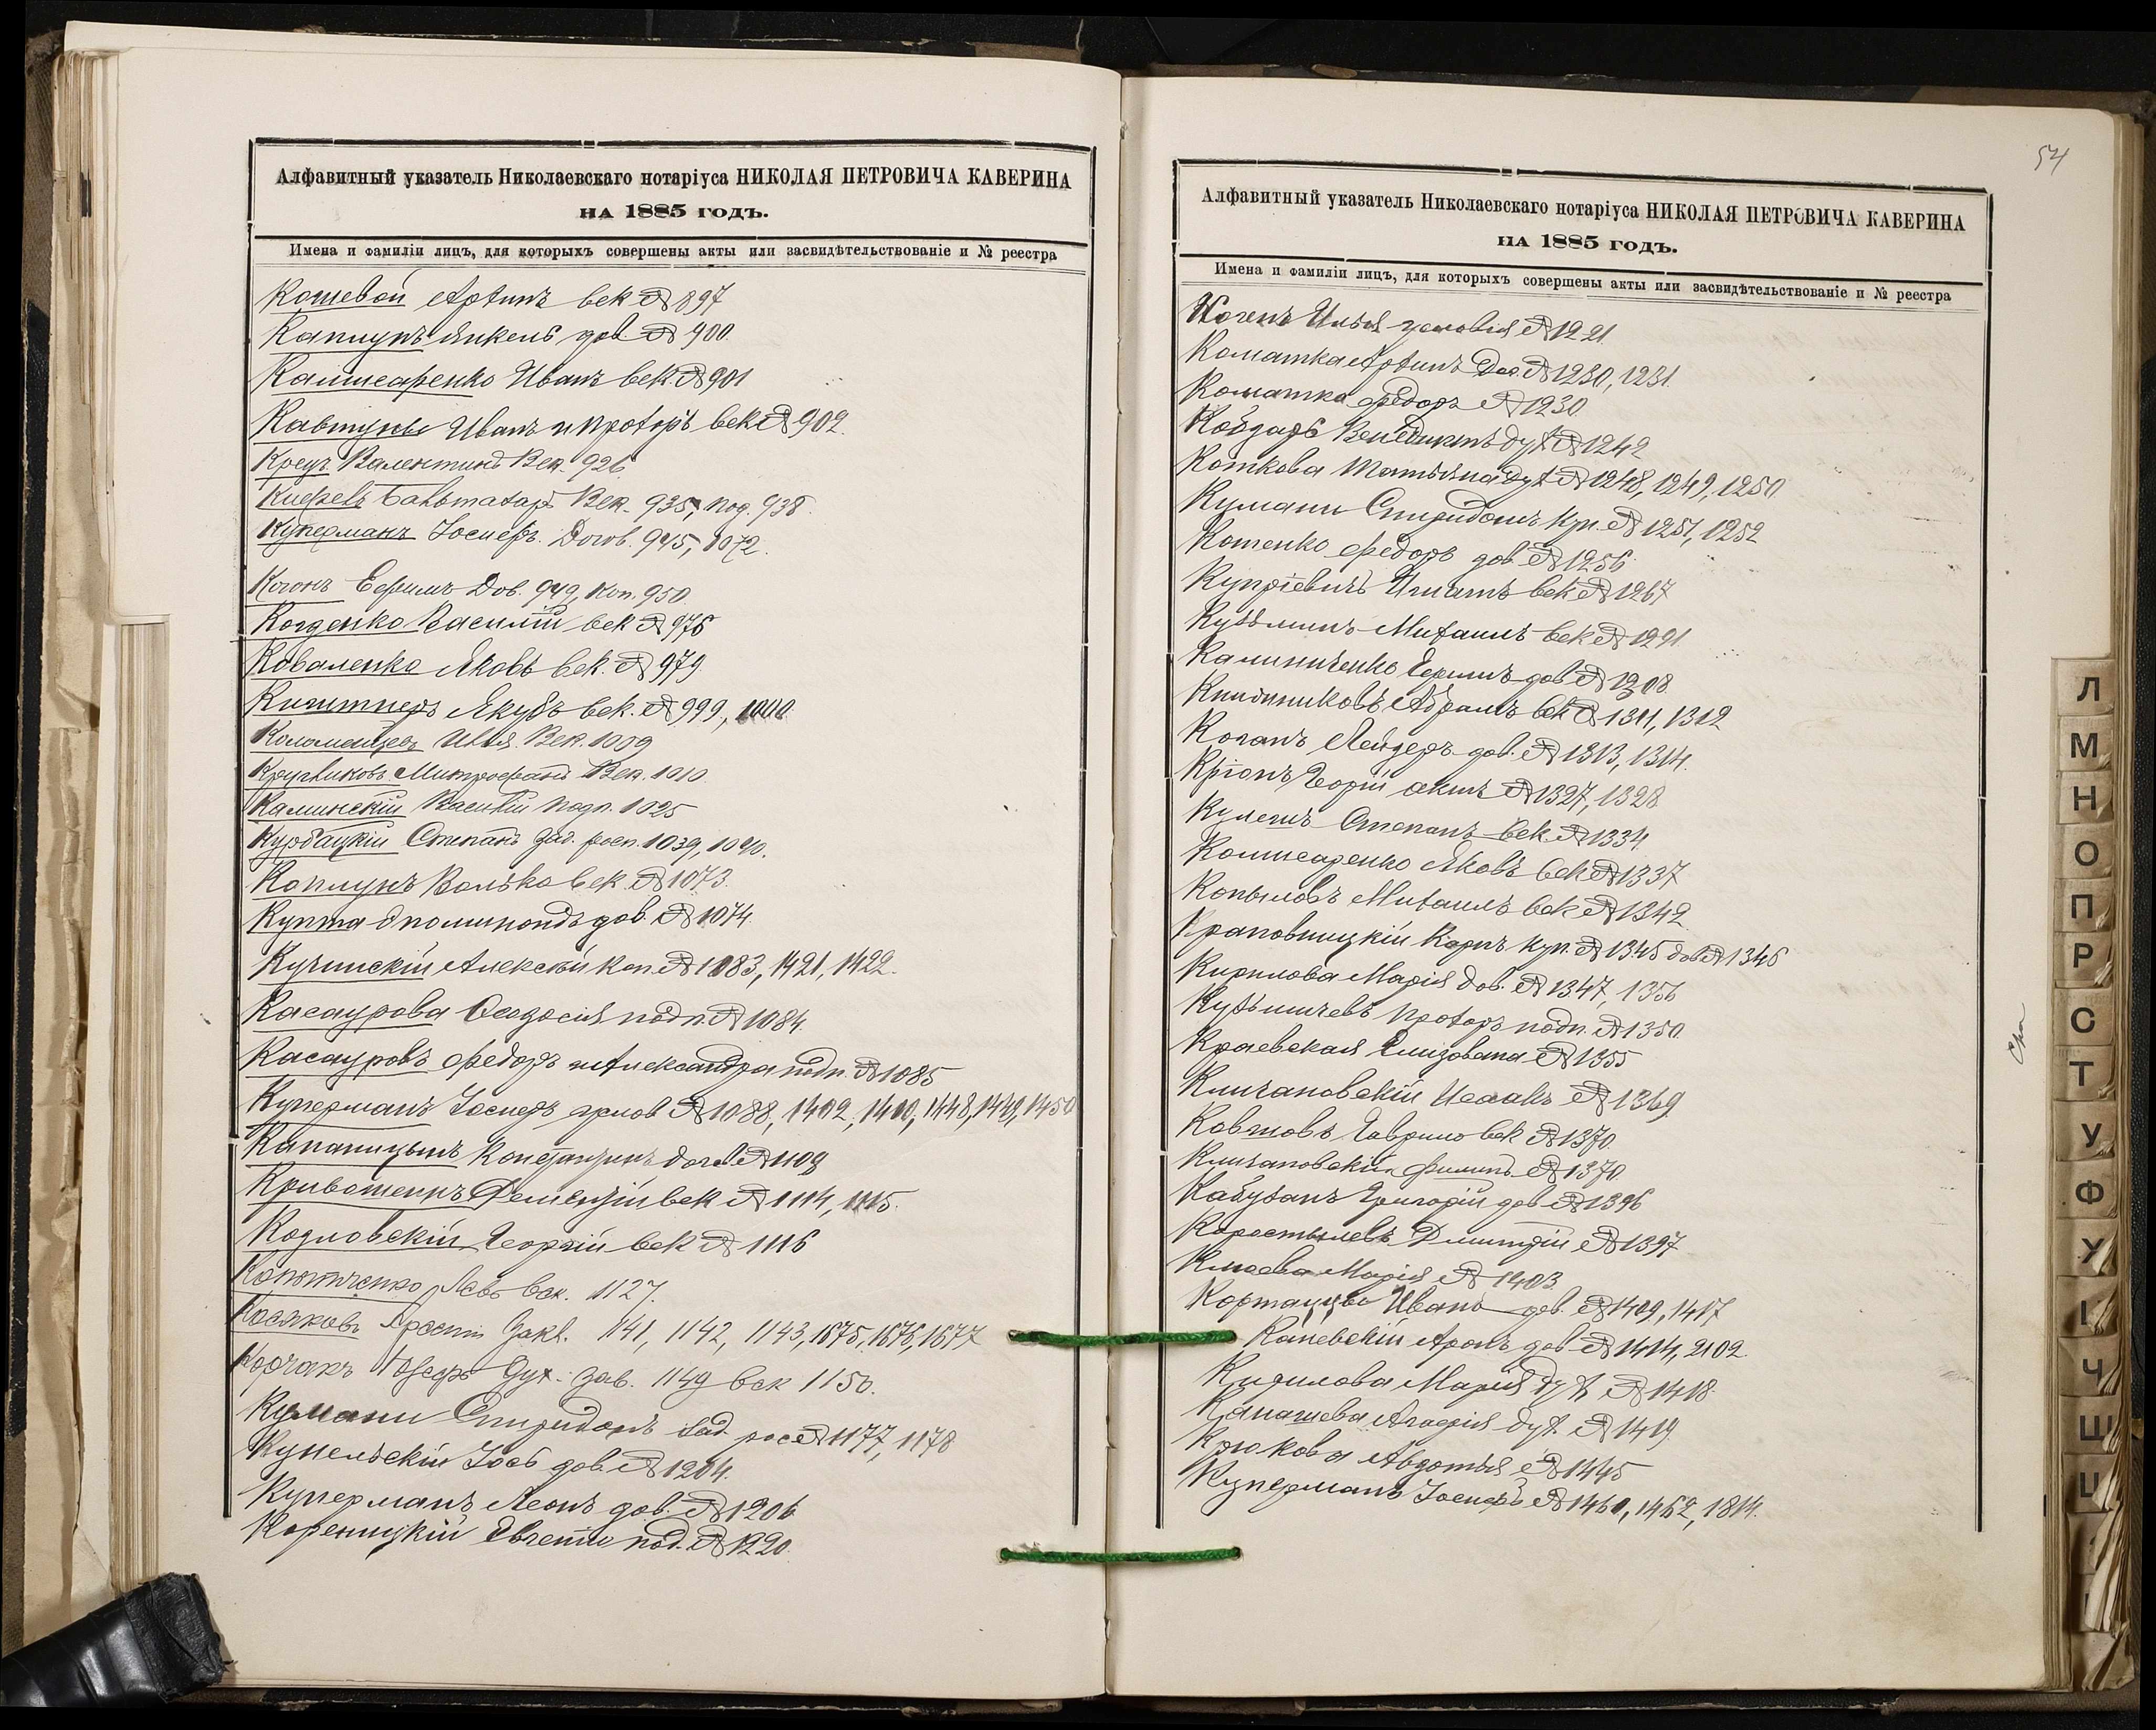 Алфавитный указатель Николаевскаго нотаріуса НИКОЛАЯ ПЕТРОВИЧА КАВЕРИНА
НА 1885 ГОДЪ.
Имена и фамиліи лицъ, для которыхъ совершены акты или засвидѣтельствованіе и № реестра
Кошевой Архипъ век № 897
Каплунъ Янкель дов. № 900.
Коммисаренко Иванъ век. № 901
Кавтуны Иванъ и Прохоръ век № 902.
Крецъ Валентинъ Век. 926
Век. 935, под. 938.
Куперманъ Іосифъ. Догов. 945, 1072.
Коганъ Ефимъ Дов. 949, Коп. 950.
Когденко Василій век № 976
Коваленко Яковъ век. № 979.
Якубъ век. № 999, 1000.
Коломейцевъ Илья. Век. 1009
Кругликовъ Митрофанъ Век. 1010
Калинскій Василій подп. 1025
Курбацкій Степанъ Зад. росп. 1039, 1040.
Каплунъ Волько век. № 1073.
Купта Эпоминондъ дов. № 1074.
Кучинскій Алексѣй коп. № 1083, 1421, 1422.
Касаурова Феодосія подп. № 1084.
Касауровъ Федоръ и Александра подп. № 1085
Куперманъ Іосифъ услов № 1088, 1402, 1410, 1448, 1449, 1450
Капаницынъ Константинъ дог. № 1109
Кривошеинъ Дементій век № 1114, 1115.
Козловскій Георгій век № 1116
Копытченко Левъ век. 1127.
Косяковъ Закл. 1141, 1142, 1143, 1675, 1676, 1677
Корчакъ Іосифъ Дух. зав. 1149 век 1150.
Кумани Спиридонъ зад. рос № 1177, 1178
Кунельскій Іосъ дов. № 1204.
Куперманъ Леонъ дов. № 1206
Кореницкій Евгеній под. № 1220.
54
Алфавитный указатель Николаевскаго нотаріуса НИКОЛАЯ ПЕТРОВИЧА КАВЕРИНА
НА 1885 ГОДЪ.
Имена и фамиліи лицъ, для которыхъ совершены акты или засвидѣтельствованіе и № реестра
Когенъ Илья условія № 1221
Коматка Архипъ Дов. № 1230, 1231.
Коматка Федоръ № 1230
Венедиктъ дух № 1242
Коткова Татьяна дух № 1248, 1249, 1250
Кумани Спиридонъ куп. № 1251, 1252
Котенко Федоръ дов. № 1256
Купріевичъ Игнатъ век № 1267
Кузьминъ Михаилъ век № 1291
Калиниченко Ефимъ дов № 1308.
Абрамъ век № 1311, 1312
Коганъ Лейзеръ дов. № 1313, 1314.
Кріонъ Георгій актъ № 1327, 1328
Кулешъ Степанъ век. № 1334
Коммисаренко Яковъ век № 1337
Копыловъ Михаилъ век № 1342
Краповницкій Карпъ куп. № 1345 дов № 1346
Кирилова Марія дов. № 1347, 1356
Кузьмичевъ Прохоръ подп. № 1350.
Краевская Елизавета № 1355
Клигановскій Исаакъ № 1369
Ковтовъ Гаврило век № 1370.
Клигановскій Филипъ № 1370.
Кабузанъ Григорій дов № 1396
Коростылевъ Дмитрій № 1397
Марія № 1403
Иванъ дов. № 1409, 1417
Каневскій Аронъ дов № 1414, 2102.
Кирилова Марія дух № 1418
Канашева Агафія дух № 1419.
Крюкова Авдотья № 1445
Куперманъ Іосифъ № 1460, 1462, 1814.
Л
М
Н
О
П
Р
С
Т
У
Ф
Х
І
Ч
Ш